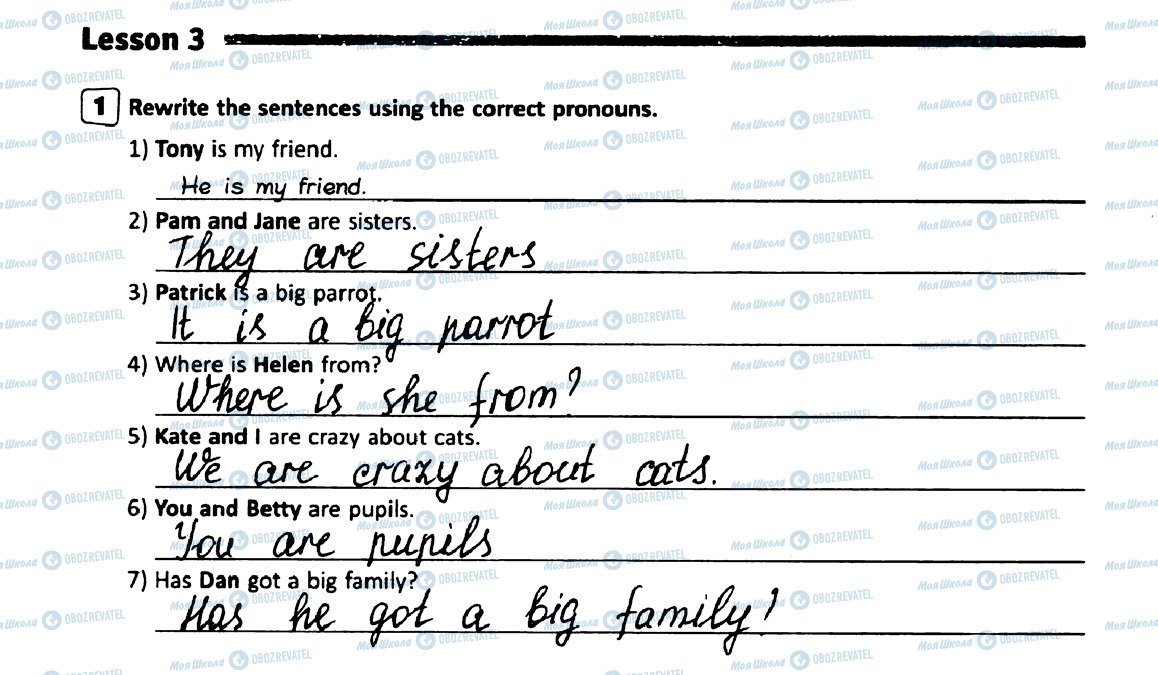 Lesson 3
1 Rewrite the sentences using the correct pronouns.
1) Tony is my friend.
He is my friend.
2) Pam and Jane are sisters.
They are sisters
3) Patrick is a big parrot.
It is a big parrot
4) Where is Helen from?
Where is she from?
5) Kate and I are crazy about cats.
We are crazy about cats.
6) You and Betty are pupils.
You are pupils
7) Has Dan got a big family?
Has he got a big family?
Моя Школа OBOZREVATEL